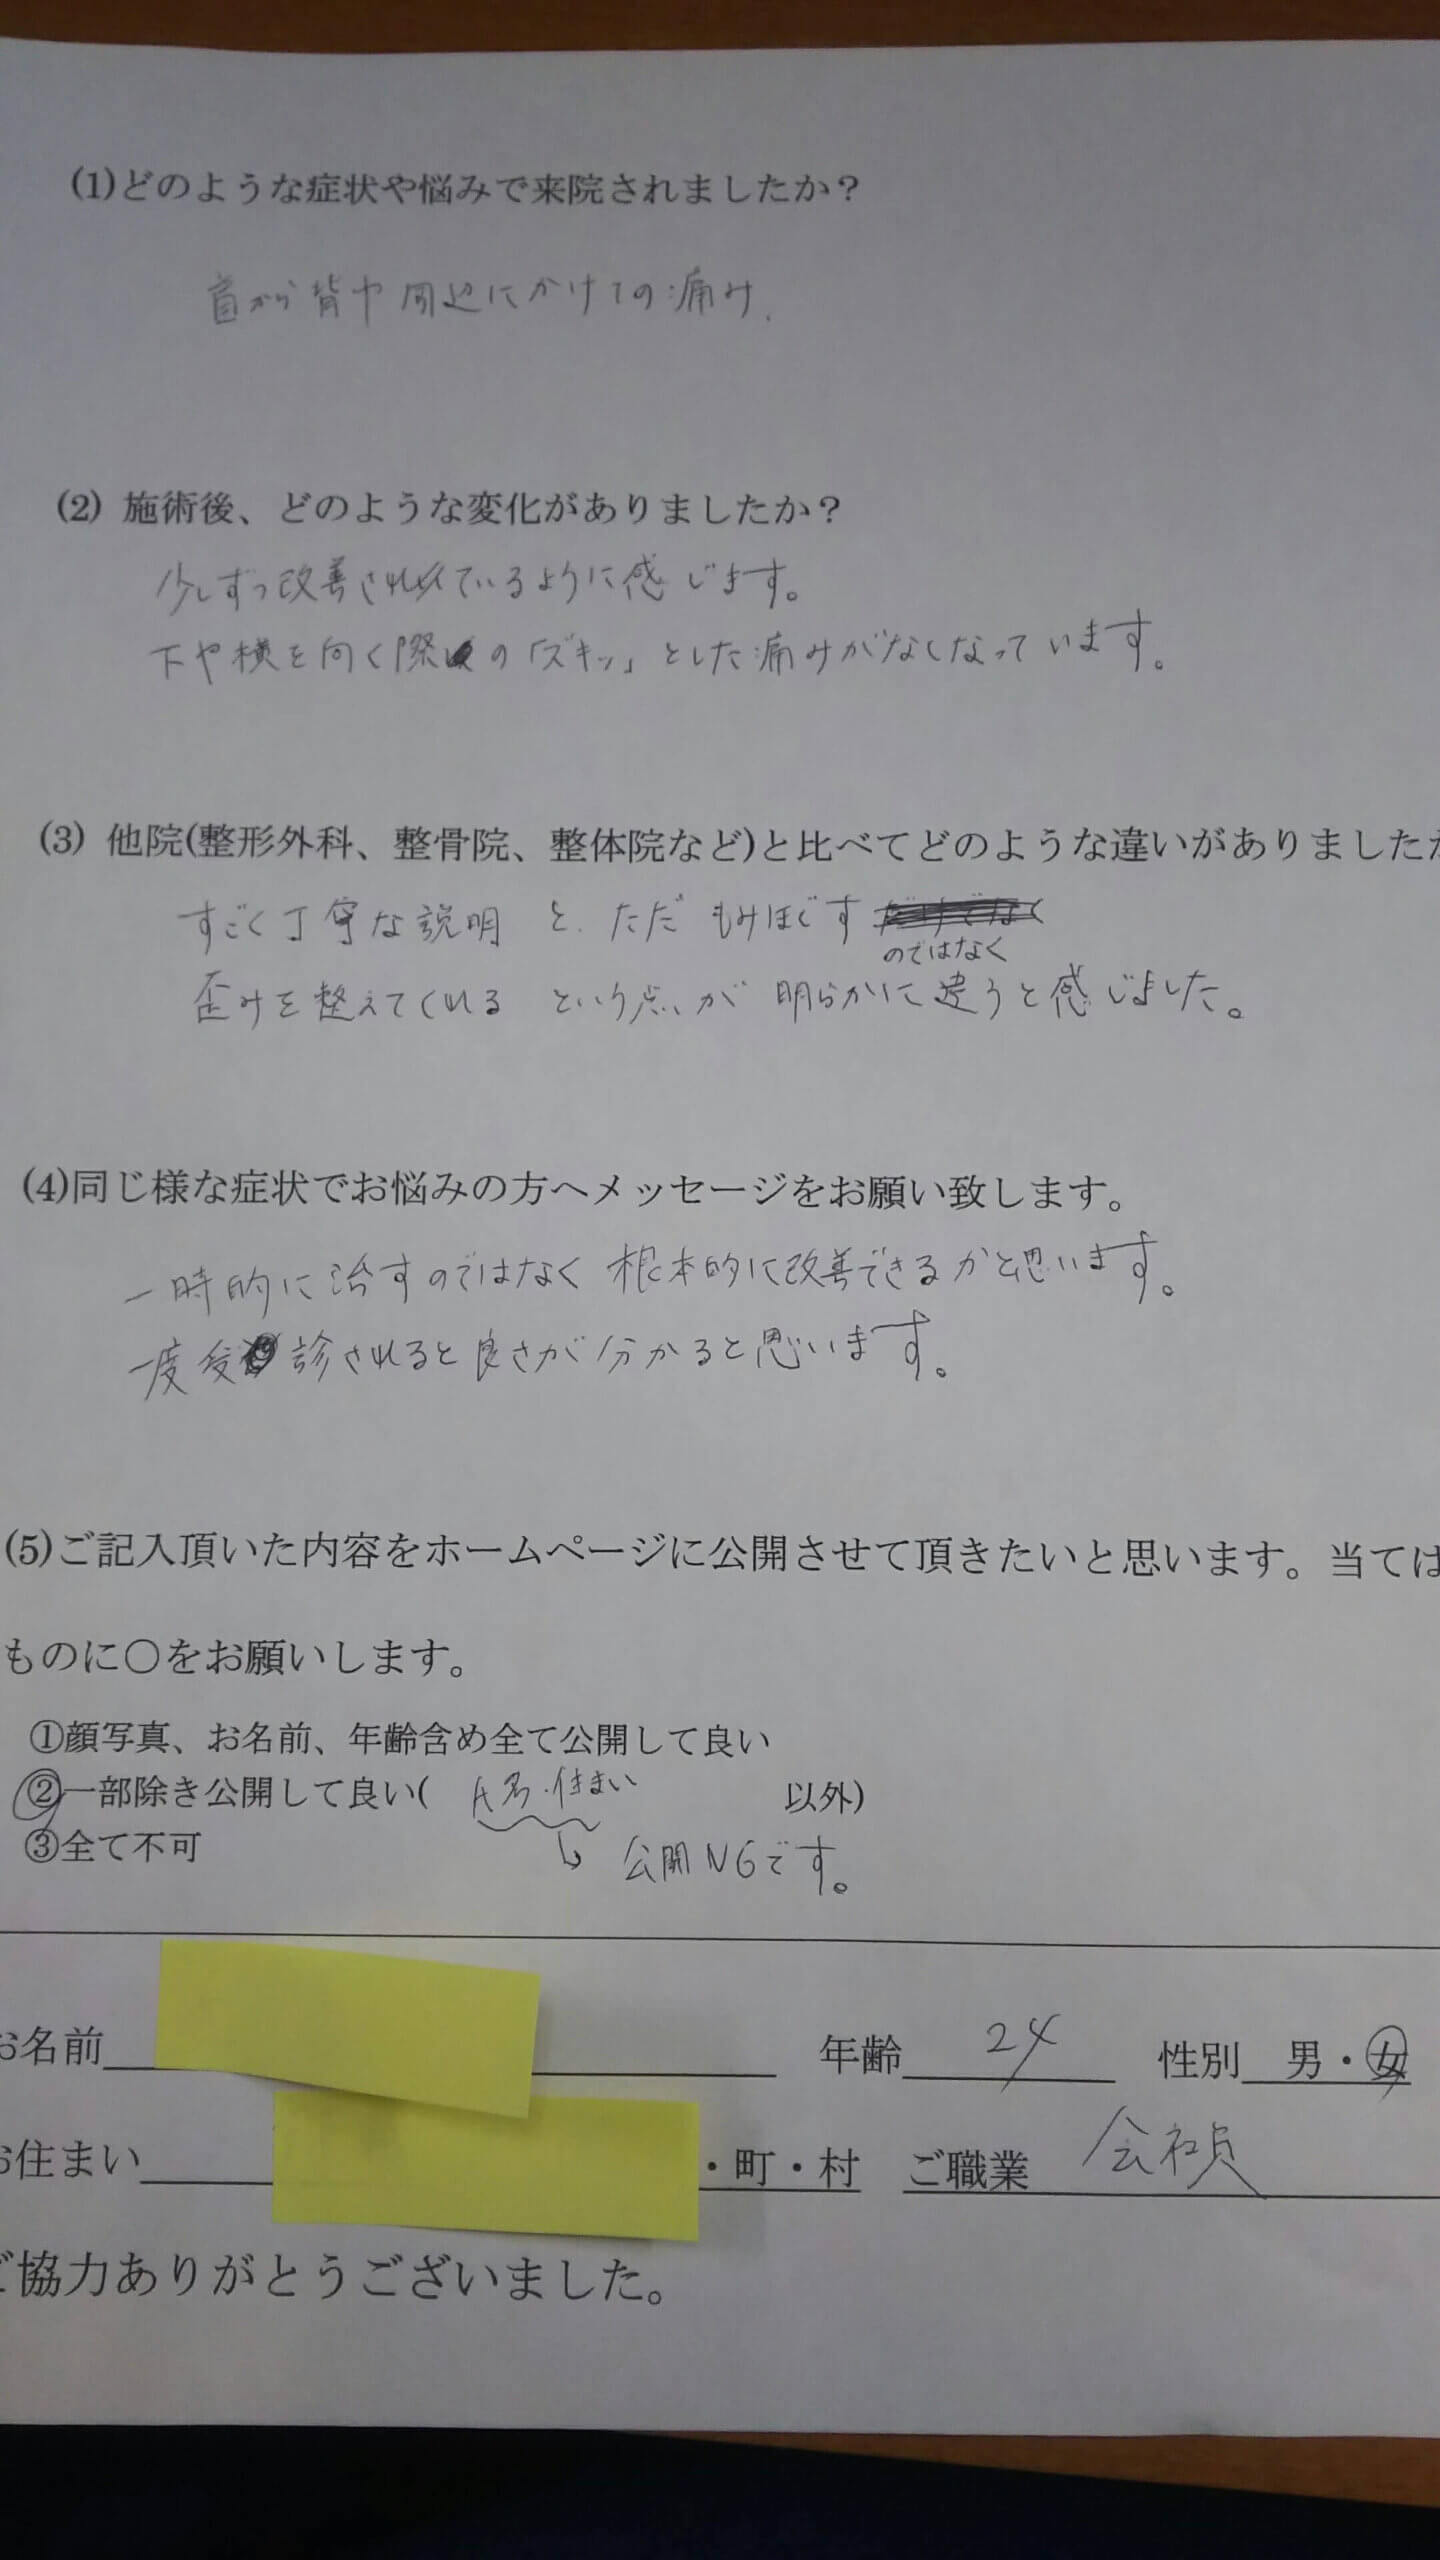 (1)どのような症状や悩みで来院されましたか?
首から背中周辺にかけての痛み.
(2) 施術後、どのような変化がありましたか?
少しずつ改善されているように感じます。
下や横を向く際の「ズキッ」とした痛みがなくなっています。
(3) 他院(整形外科、整骨院、整体院など)と比べてどのような違いがありましたか
すごく丁寧な説明と、ただもみほぐす
のではなく
歪みを整えてくれるという点が明らかに違うと感じました。
(4)同じ様な症状でお悩みの方へメッセージをお願い致します。
一時的に治すのではなく根本的に改善できるかと思います。
一度受診されると良さが分かると思います。
(5)ご記入頂いた内容をホームページに公開させて頂きたいと思います。当ては
ものに○をお願いします。
①顔写真、お名前、年齢含め全て公開して良い
②一部除き公開して良い( 氏名・住まい 以外)
③全て不可
公開NGです。
お名前 年齢 24 性別 男・女
お住まい ・町・村 ご職業 会社員
ご協力ありがとうございました。